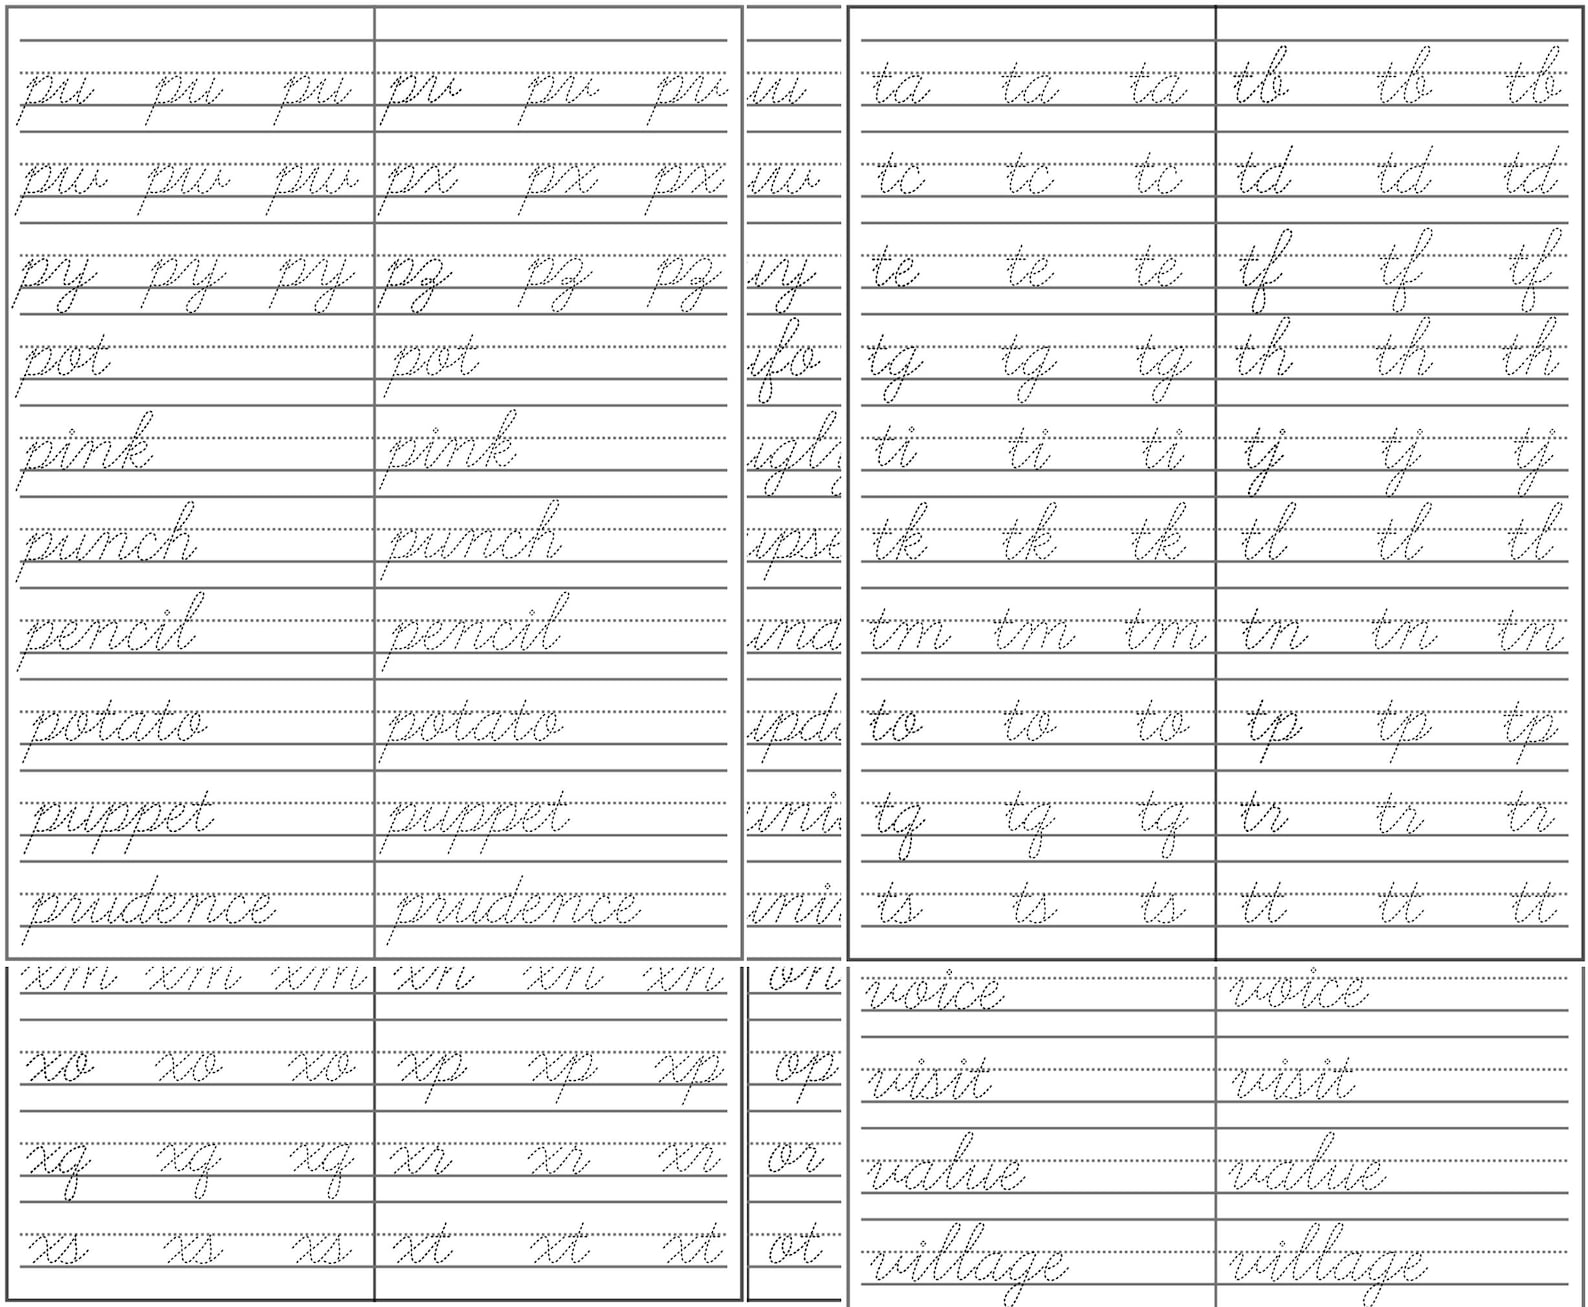 pu pu pu pv pv pv
pw pw pw px px px
py py py pz pz pz
pot pot
pink pink
punch punch
pencil pencil
potato potato
puppet puppet
prudence prudence
uu
uw
uy
ufo
ta ta ta tb tb tb
tc tc tc td td td
te te te tf tf tf
tg tg tg th th th
ti ti ti tj tj tj
tk tk tk tl tl tl
tm tm tm tn tn tn
to to to tp tp tp
tq tq tq tr tr tr
ts ts ts tt tt tt
xm xm xm xn xn xn
xo xo xo xp xp xp
xq xq xq xr xr xr
xs xs xs xt xt xt
on
op
or
ot
voice voice
visit visit
value value
village village